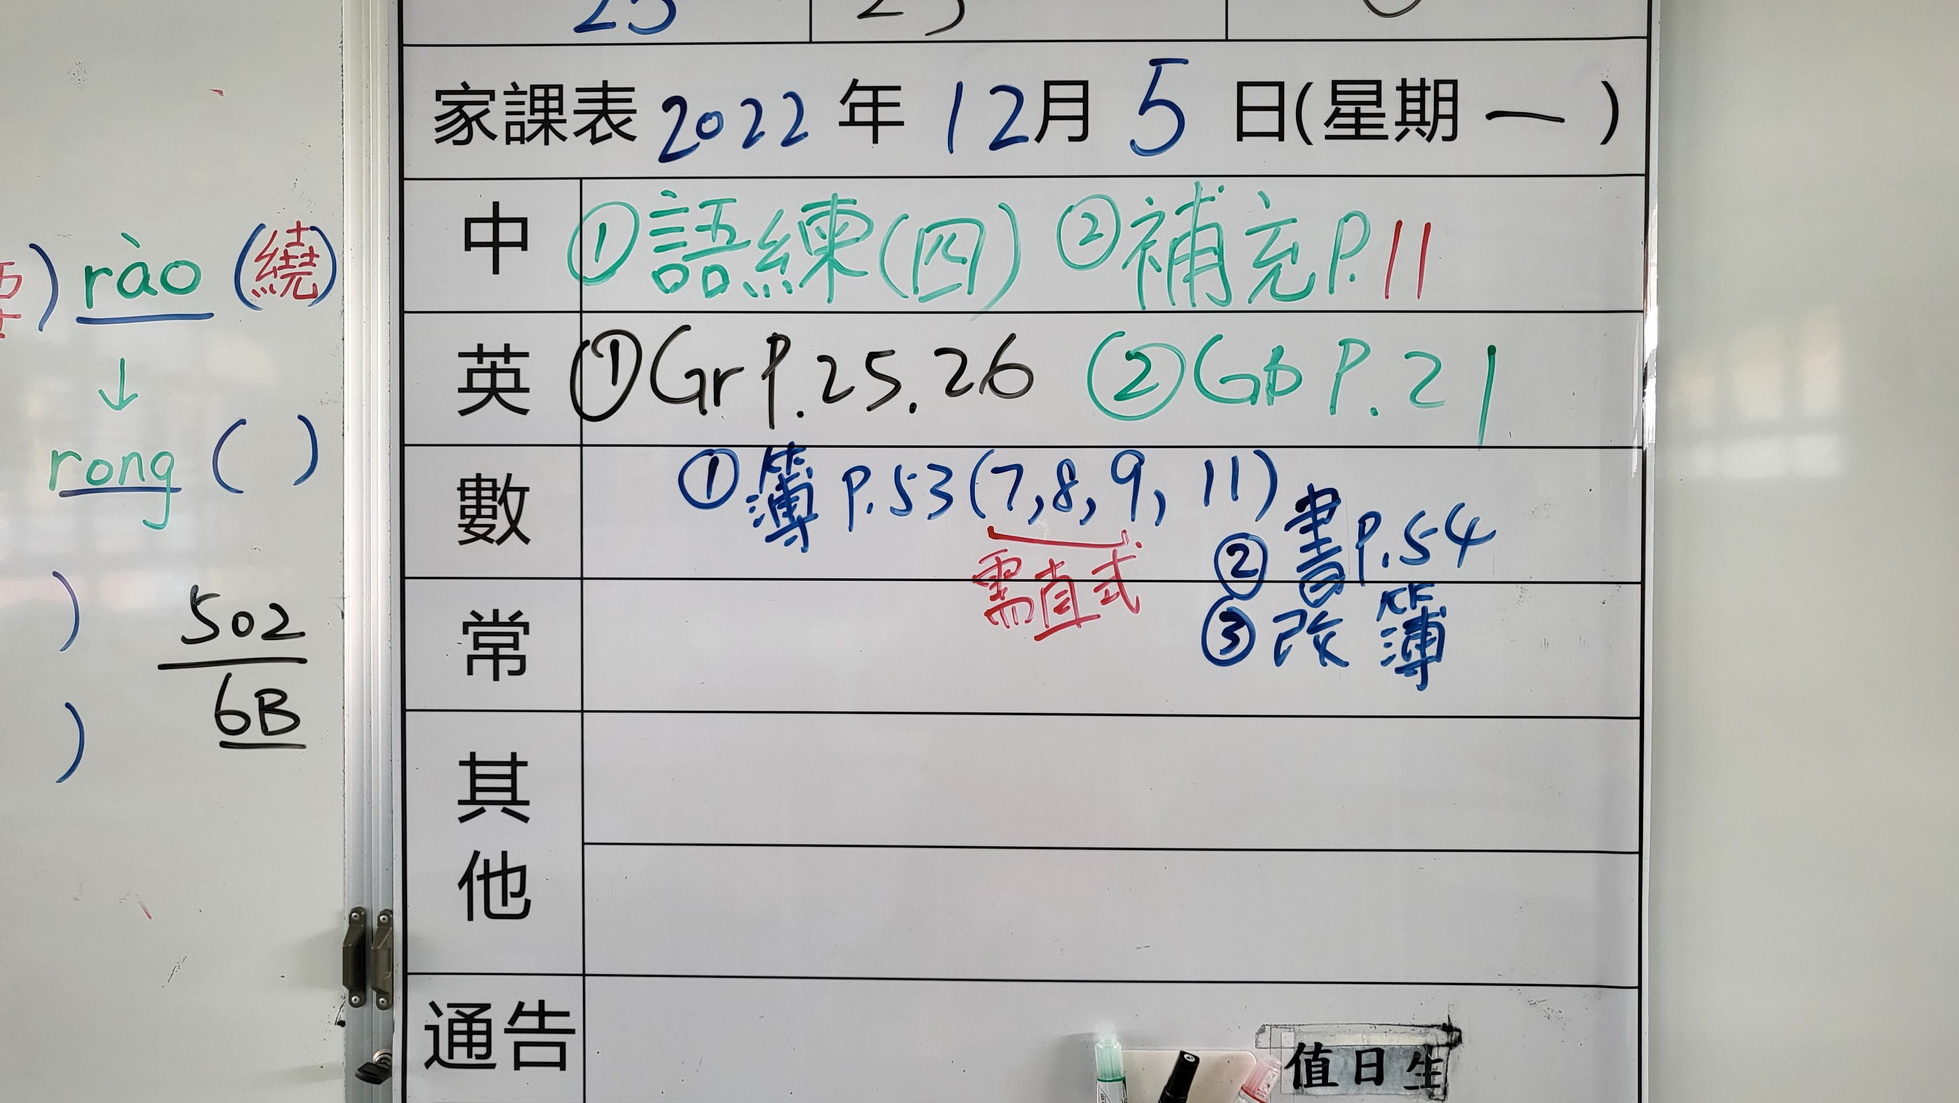 家課表 2022 年 12月 5 日(星期 一 )
中 ①語練(四) ②補充P.11
英 ①Gr P.25.26 ②GB P.21
數 ①簿 P.53(7,8,9, 11)
需直式
②書P.54
常 ③改簿
其他
通告
值日生
rào (繞)
↓
rong ( )
502
6B